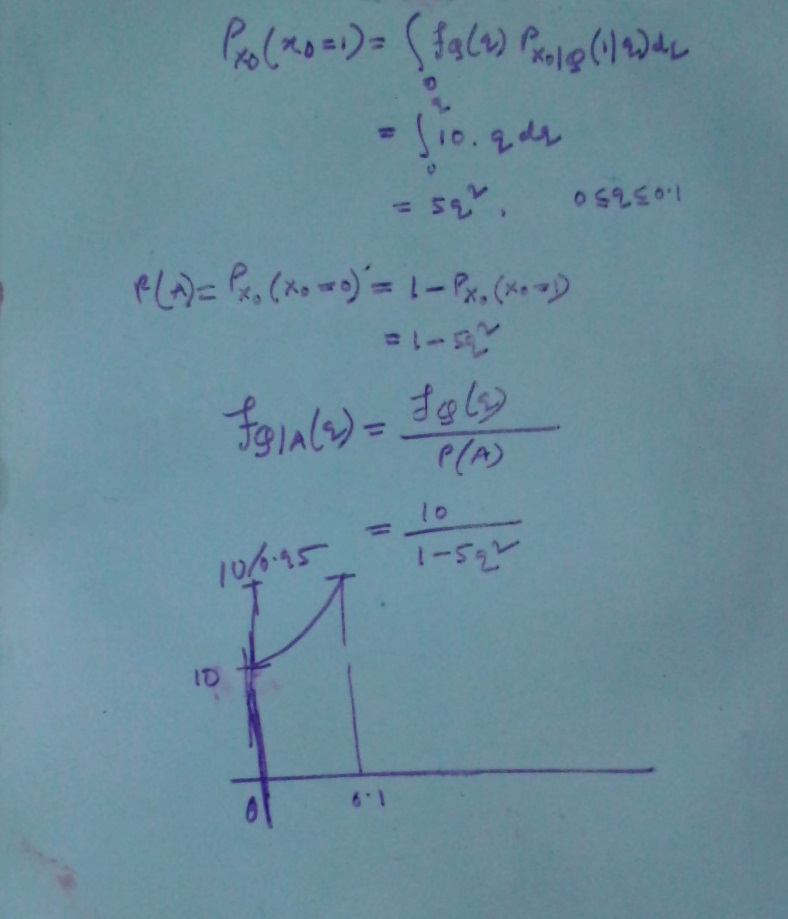 P_{X_0}(x_0=1) = ∫_0 f_Q(q) P_{X_0|Q}(1|q)dq
= ∫_0^q 10. q dq
= 5q², 0≤q≤0.1
P(A) = P_{X_0}(x_0=0) = 1 - P_{X_0}(x_0=1)
= 1 - 5q²
f_{Q|A}(q) = f_Q(q) / P(A)
= 10 / 1-5q²
10/0.95
10
0 0.1